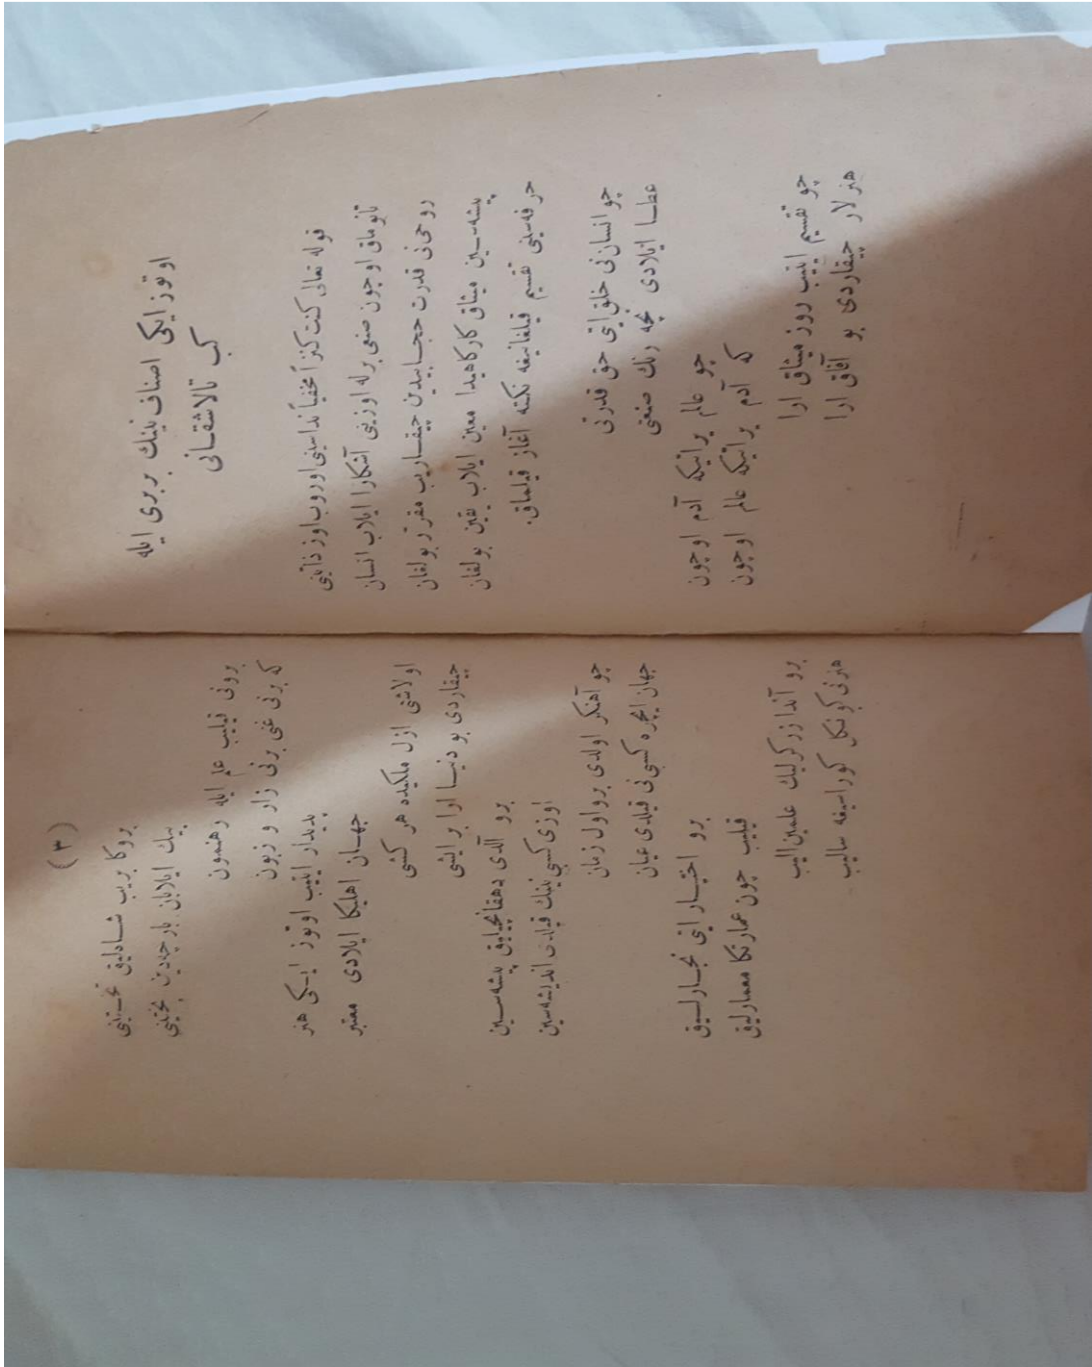 اوتوز ایکی اصناف نینك بربری ایله
كب تالاشقانی
قوله تعالی کنت کنزاً مخفیاً نداسینی اوروب اوز ذاتینی
تانوماق اوچون صنعی برله اوزینی آشکارا ایلاب انسان
روحی نی قدرت حجابیدین چیقاریب مقرر بولغان
پیشه سین میثاق کارکاهیدا معین ایلاب یقین بولغان
حرفه سینی تقسیم قیلغانیغه نکته آغاز قیلماق.
چو انسان نی خلق ایتی حق قدرتی
عطا ایلادی نچه رنك صنعتی
چو عالم یراتیکه آدم اوچون
که آدم یراتیکه عالم اوچون
چو تقسیم ایتیب روز میثاق ارا
هنرلار چیقاردی بو آفاق ارا
(۳)
بروکا بریب شادلیق تختینی
بیك ایلابان بارچه دین بختینی
برونی قیلیب علم ایله رهنمون
که برنی غنی برنی زار و زبون
پدیدار ایتیب اوتوز ایکی هنر
جهان اهلیکا ایلادی معتبر
اولاشتی ازل ملکیده هر کشی
چیقاردی بو دنیا ارا بر ایشی
برو آلدی دهقانچیلیق پیشه سین
اوزی کسبی نینك قیلدی اندیشه سین
چو آهنکر اولدی برو اول زمان
جهان ایچره کسبی نی قیلدی عیان
برو اختیار ایتی نجارلیق
قیلیب چون عمارتکا معمارلیق
برو آندا زرکرلیك علمین الیب
هنرنی کونکل کوراسیغه سالیب